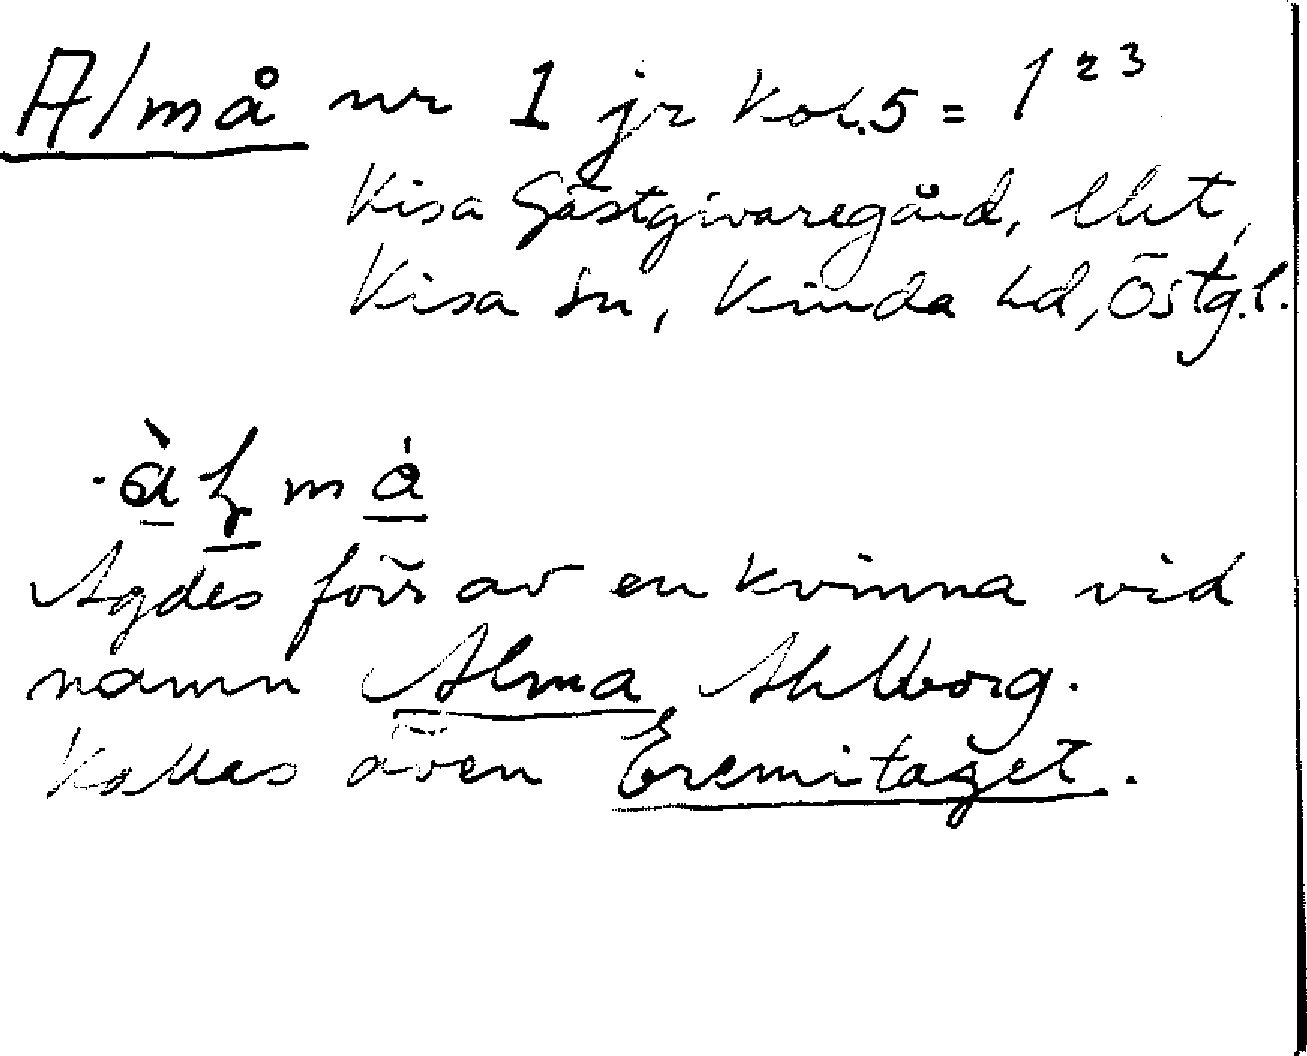 Almå nr 1 jr kol.5 = 1²³
Kisa Gästgivaregård, lht,
Kisa sn, Kinda hd, Östg.l.
Ägdes förr av en kvinna vid
namn Alma Ahlborg.
Kallas även Eremitaget.